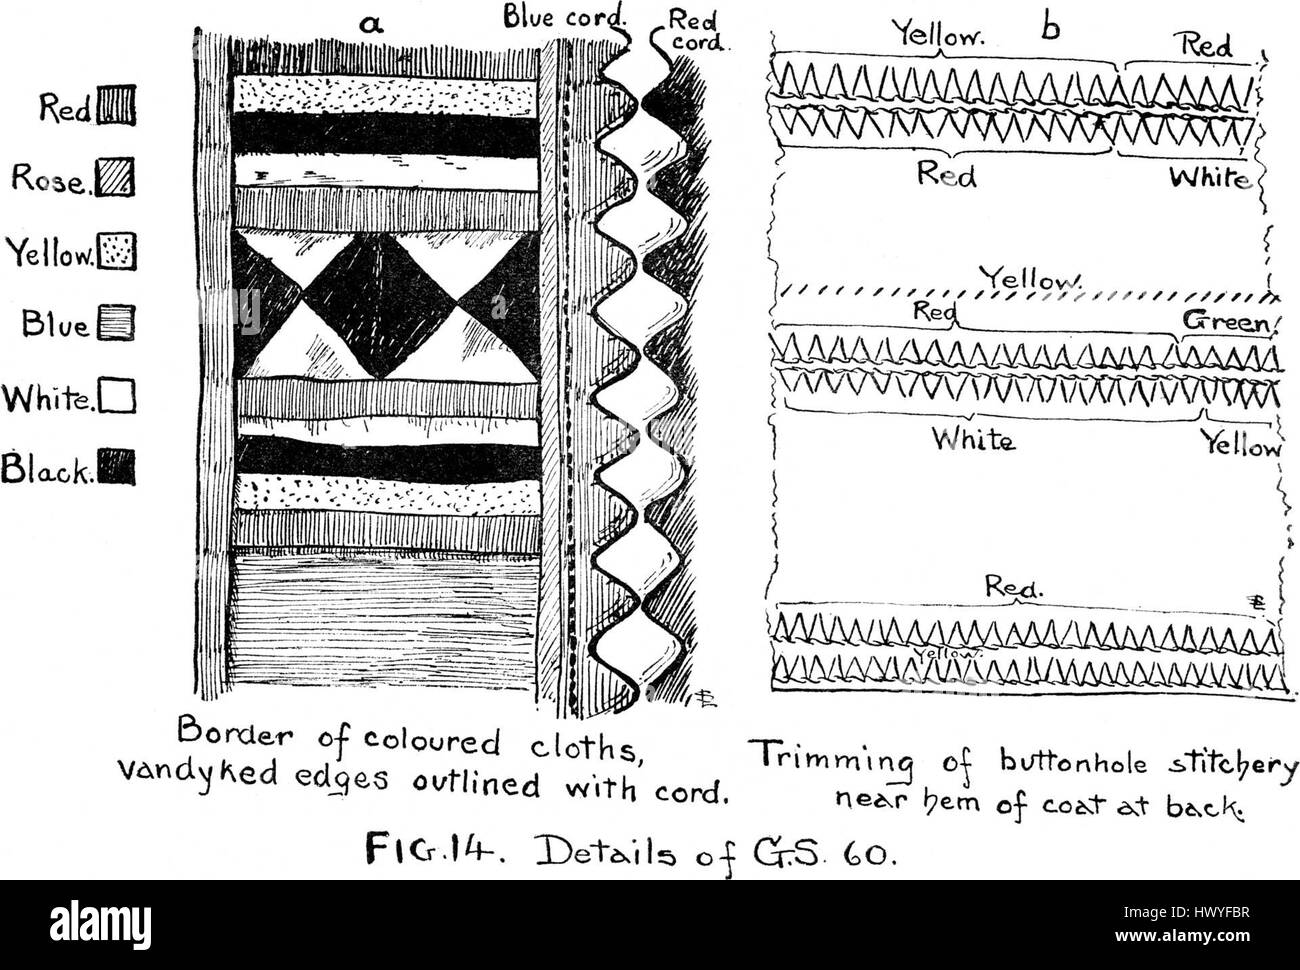 a
Blue cord.
Red
cord.
b
Yellow.
Red
Red
White
Red
Rose.
Yellow.
Blue
White.
Black.
Yellow.
Red
Green.
White
Yellow
Red.
Yellow.
Border of coloured cloths,
vandyked edges outlined with cord.
Trimming of buttonhole stitchery
near hem of coat at back.
FIG.14. Details of G.S. 60.
a
alamy
Image ID: HWYFBR
www.alamy.com